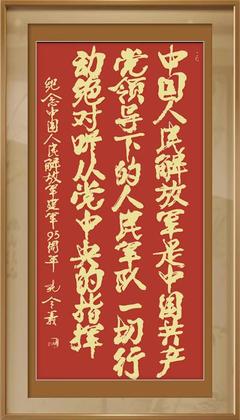 中国人民解放军是中国共产
党领导下的人民军队一切行
动绝对听从党中央的指挥
纪念中国人民解放军建军95周年